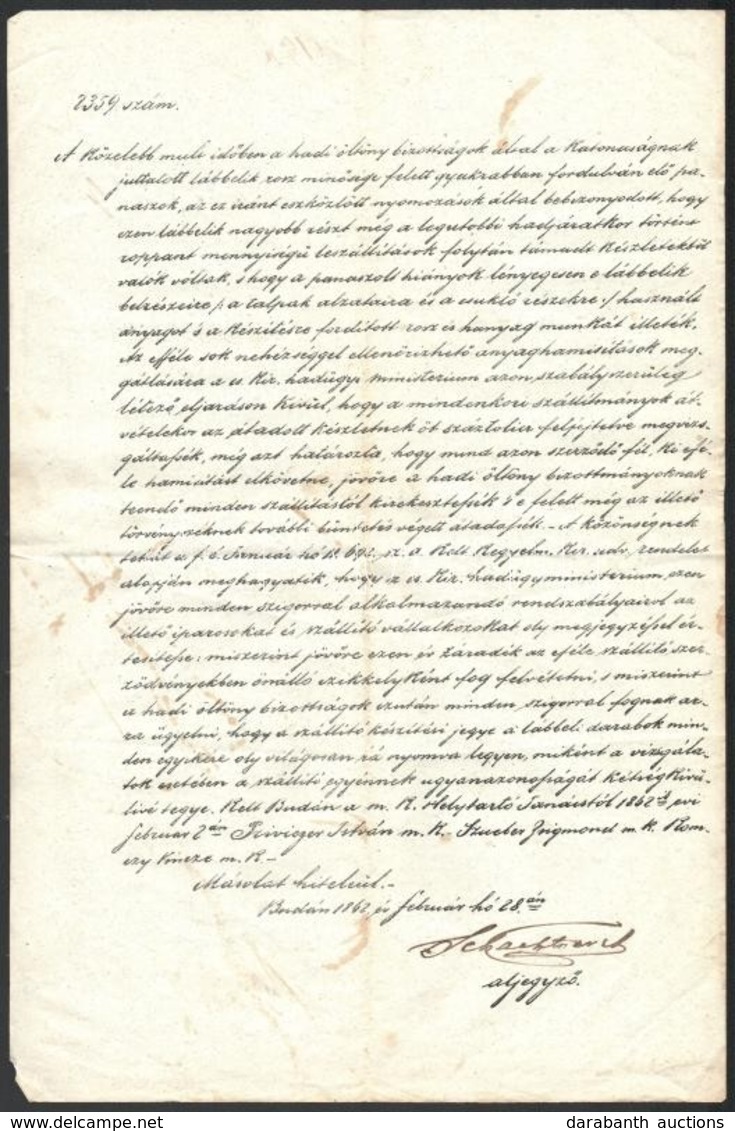 2359 szám.
A közelebb mult időben a hadi öltöny bizottságok által a Katonaságnak
juttatott lábbelik rosz minősége felett gyakrabban fordulván elő pa-
naszok, az ez iránt eszközlött nyomozások által bebizonyodott, hogy
ezen lábbelik nagyobb részt még a legutolbbi hadjáratkor történt
roppant mennyiségü leszállitások folytán támadt készletekből
valók vóltak, s hogy a panaszolt hiányok lényegesen e lábbelik
belrészeire /: a talpak alzataira és a csukló részekre :/ használt
anyagot s a készitésre forditott rosz és hanyag munkát illeték.
Az efféle sok nehézséggel ellenőrizhető anyaghamisitások meg-
gátlására a cs. Kir. hadügyi ministerium azon szabályszerüleg
létező eljáráson kivül, hogy a mindenkori szállitmányok át-
vételekor az átadott készletnek öt száztolia felfejtetve megvizs-
gáltassék, még azt határozta, hogy mind azon szerződő fél, ki efé-
le hamisitást elkövetne, jövőre a hadi öltöny bizottmányoknak
teendő minden szállitástól kirekesztessék s e felett még az illető
törvényszéknek további büntetés végett átadassék. - A közönségnek
tehát a f. é. Január hó 692. sz. a. Kelt Kegyelm. Kir. udv. rendelet
alapján meghagyatik, hogy a cs. Kir. hadügyministerium ezen
jövőre minden szigorral alkalmazandó rendszabályairol az
illető iparosokat és szállitó vállalkozókat oly megjegyzéssel ér-
tesitese: miszerint jövőre ezen év záradék az eféle szállitó szer-
ződvényekben önálló czikkelyként fog felvétetni, s miszerint
a hadi öltöny bizottságok ezután minden szigorral fognak ar-
ra ügyelni, hogy a szállitó készitési jegye a lábbeli darabok min-
den egyikére oly világosan rá nyomva legyen, miként a vizsgála-
tok esetében a szállitó egyénnek ugyanazonosságát kétség kivü-
livé tegye. Kelt Budán a m. K. Helytartó Tanácstól 1862ik évi
február 2án Privitzer István m. K. - Stueber Zsigmond m. K. Rom-
czy Vincze m. K. -
Másolat hiteléül. -
Budán 1862. év február hó 28.án
aljegyző.
darabanth auctions